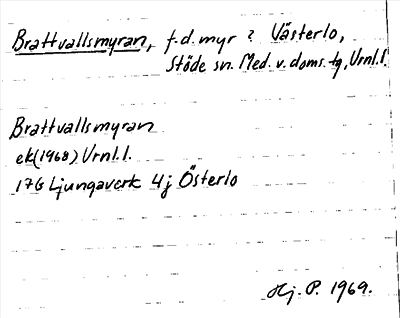 Brattvallsmyran, f.d. myr ? Västerlo,
Stöde sn. Med. v. doms. tg, Vrnl.l.
Brattvallsmyran
ek(1968) Vrnl.l.
17G Ljungaverk 4j Österlo
Hj. P. 1969.